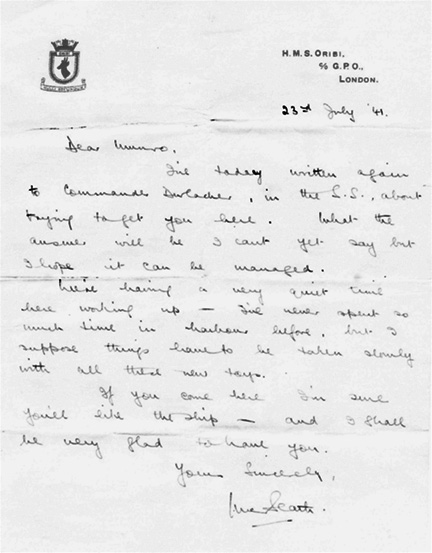 H.M.S. ORIBI,
C/o G.P.O.,
LONDON.
23rd July '41.
Dear Munro,
I've today written again
to Commander Durlacher, in the S.S., about
trying to get you here. What the
answer will be I can't yet say but
I hope it can be managed.
We're having a very quiet time
here working up — I've never spent so
much time in harbour before, but I
suppose things have to be taken slowly
with all these new toys.
If you come here I'm sure
you'll like the ship — and I shall
be very glad to have you.
Yours Sincerely,